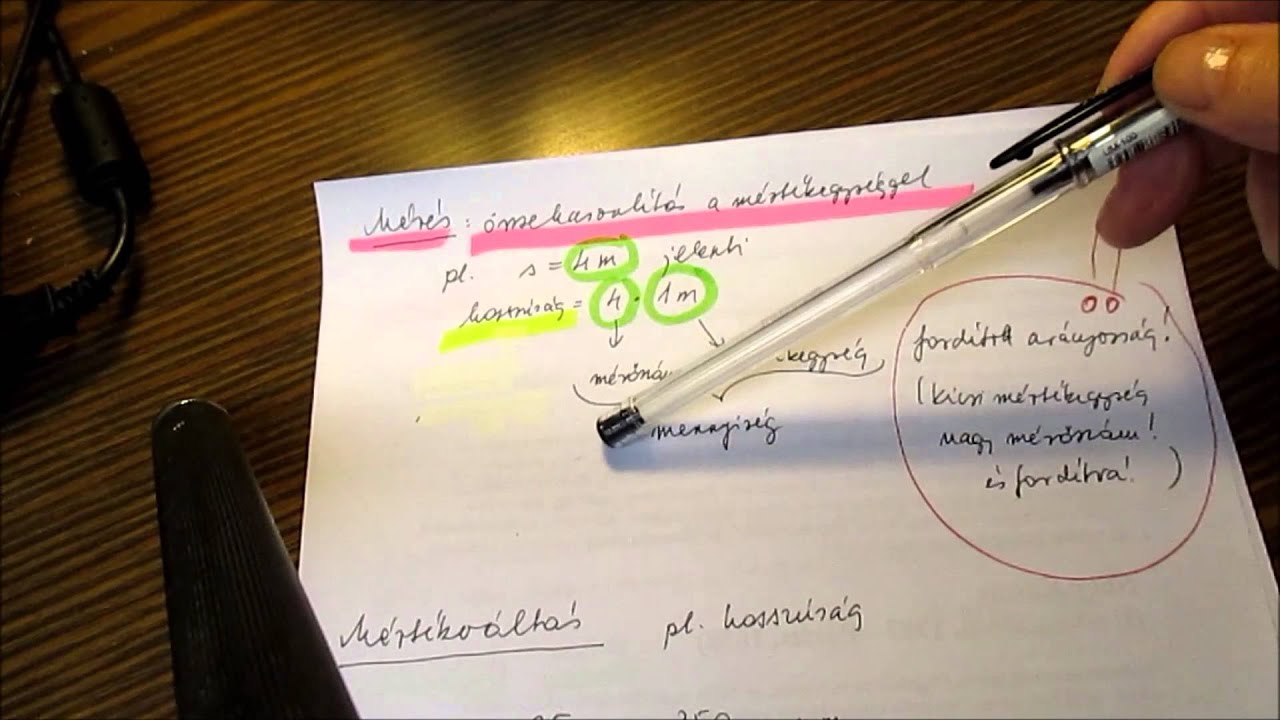 Mérés: összehasonlítás a mértékegységgel
pl. s = 4 m jelenti
hosszúság = 4 · 1 m
mérőszá egység
mennyiség
fordított arányosság!
(kicsi mértékegység
nagy mérőszám!
és fordítva!)
Mértékváltás pl. hosszúság